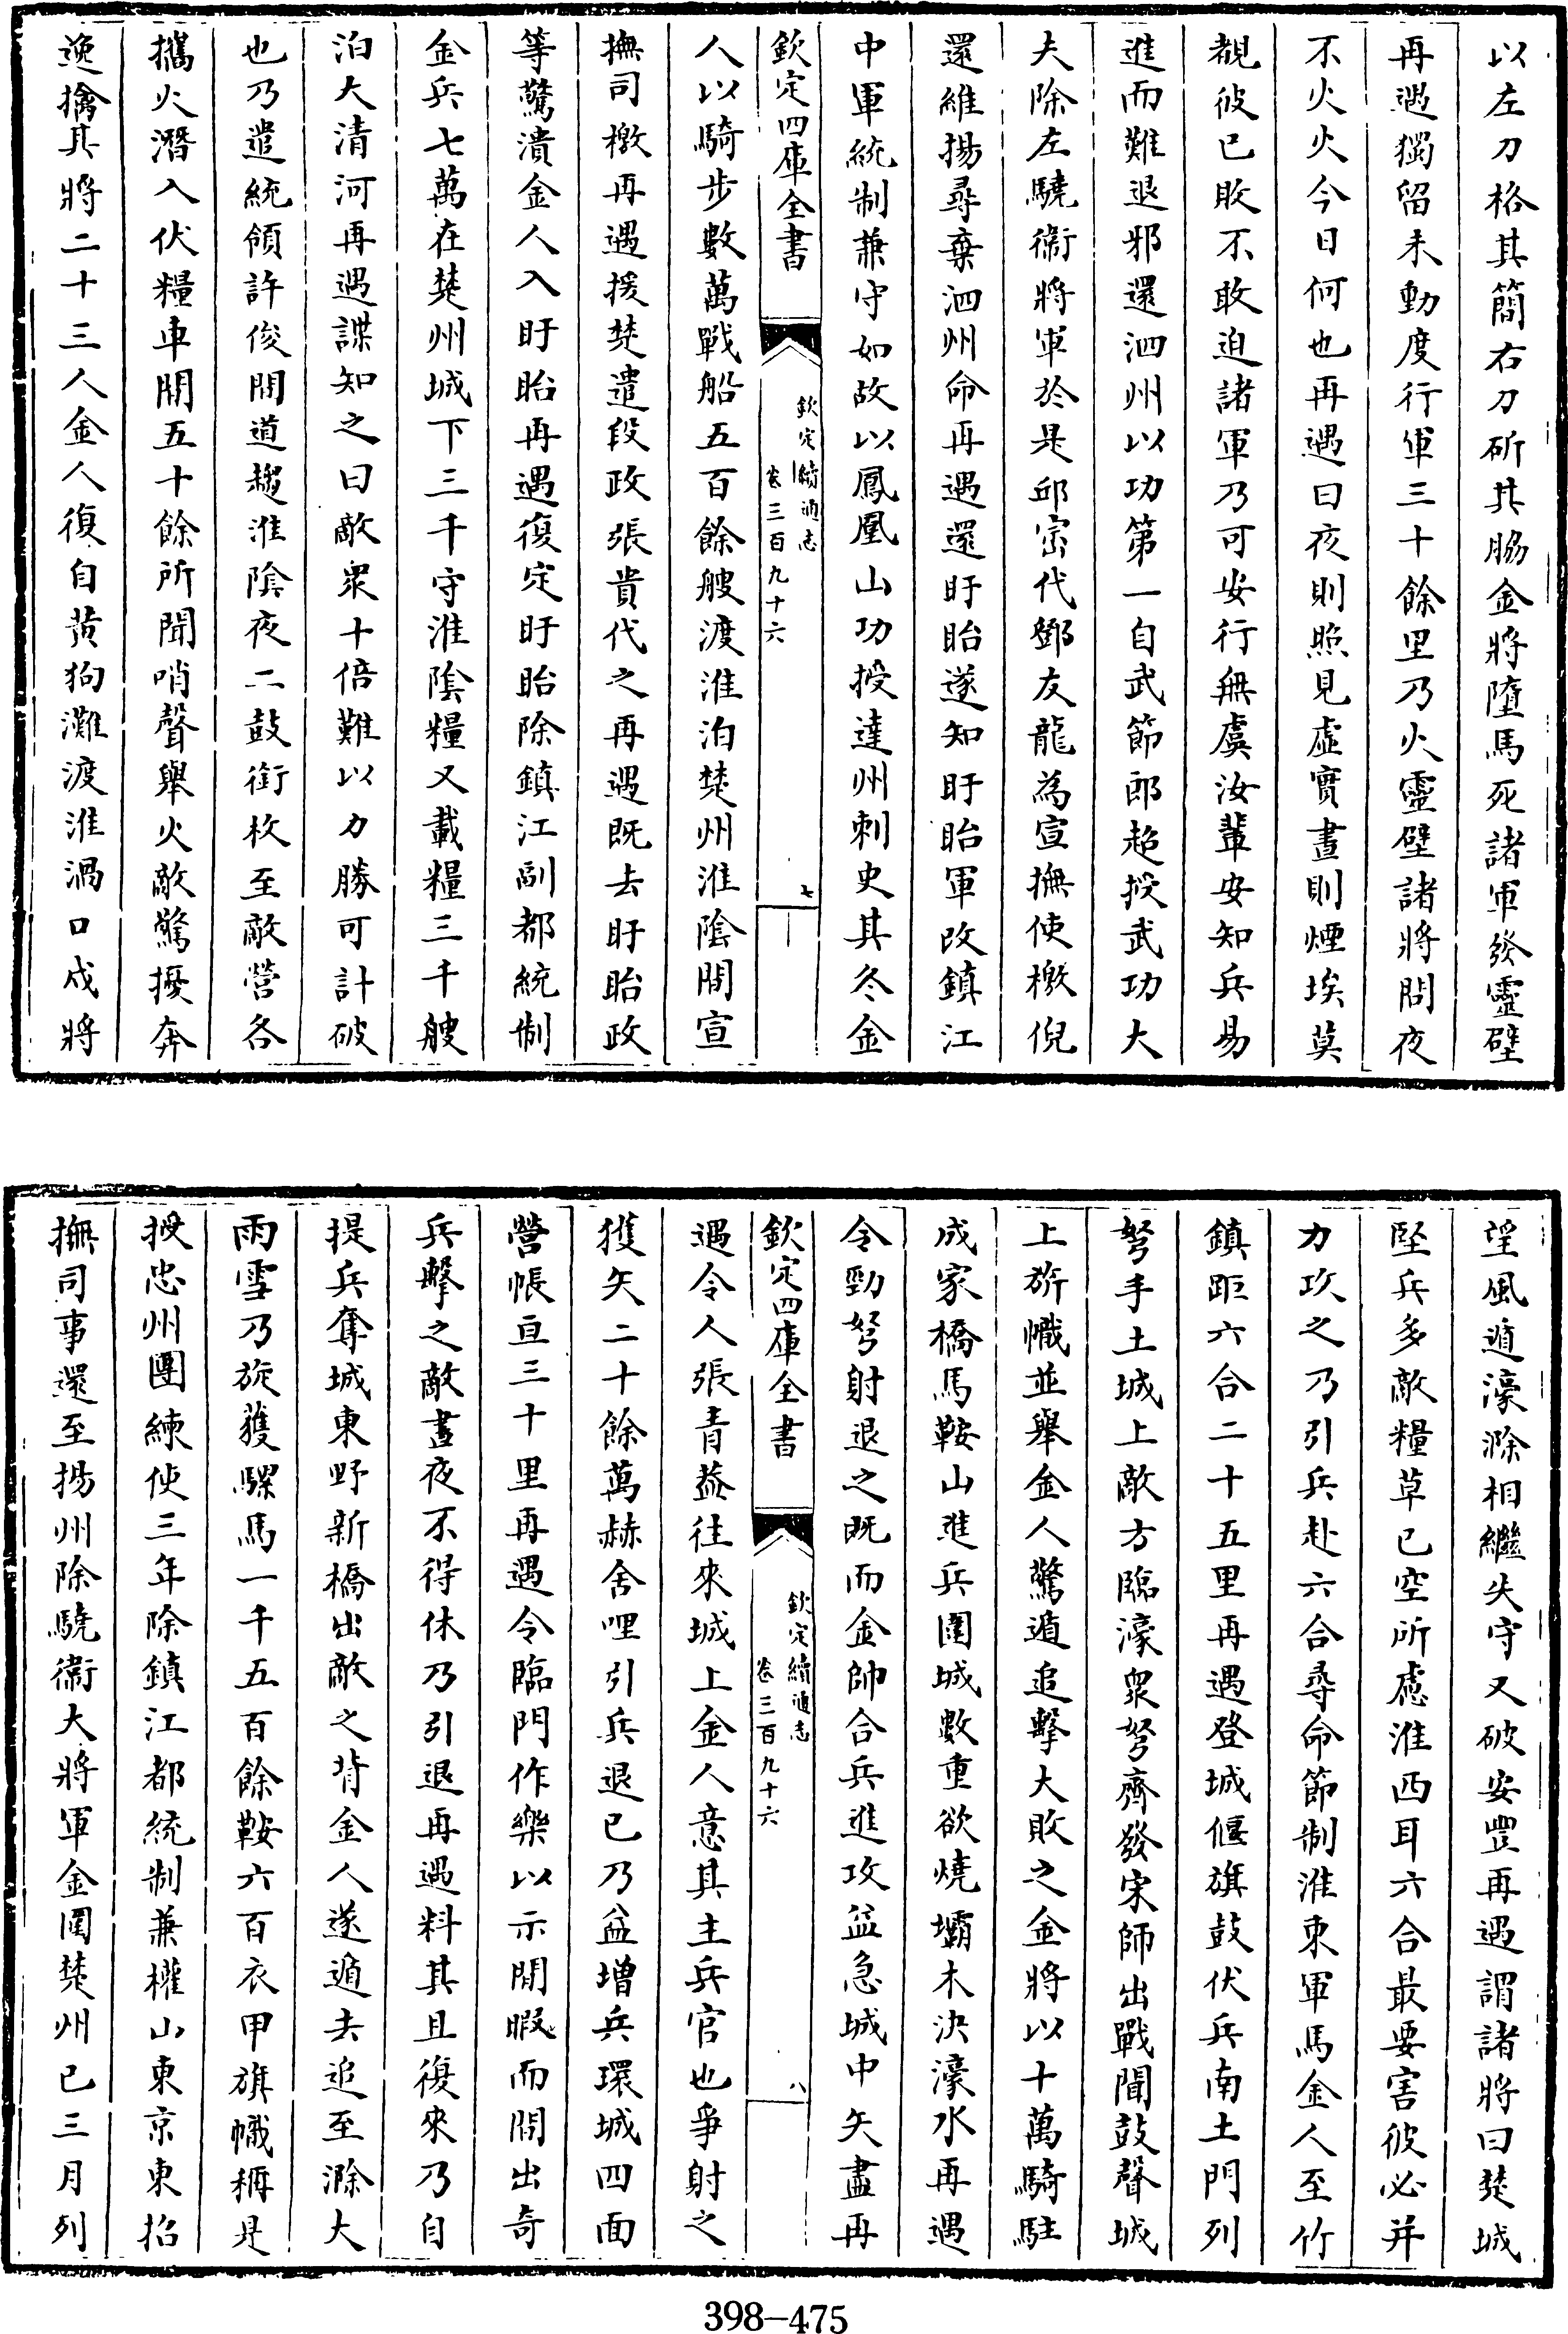 以左刀格其簡右刀斫其脇金將墮馬死諸軍發靈壁
再遇獨留未動度行軍三十餘里乃火靈壁諸將問夜
不火火今日何也再遇曰夜則照見虛實晝則煙埃莫
覩彼已敗不敢迫諸軍乃可安行無虞汝輩安知兵易
進而難退邪還泗州以功第一自武節郎超授武功大
夫除左驍衛將軍於是邱崈代鄧友龍為宣撫使檄倪
還維揚尋棄泗州命再遇還盱眙遂知盱眙軍改鎮江
中軍統制兼守如故以鳳凰山功授達州刺史其冬金
欽定四庫全書
欽定續通志
卷三百九十六
七
人以騎步數萬戰船五百餘艘渡淮泊楚州淮陰閒宣
撫司檄再遇援楚遣段政張貴代之再遇既去盱眙政
等驚潰金人入盱眙再遇復定盱眙除鎮江副都統制
金兵七萬在楚州城下三千守淮陰糧又載糧三千艘
泊大清河再遇諜知之曰敵衆十倍難以力勝可計破
也乃遣統領許俊閒道趨淮陰夜二鼓銜枚至敵營各
攜火潛入伏糧車閒五十餘所聞哨聲舉火敵驚擾奔
逸擒其將二十三人金人復自黄狗灘渡淮渦口戍將
望風遁濠滁相繼失守又破安豐再遇謂諸將曰楚城
堅兵多敵糧草已空所慮淮西耳六合最要害彼必并
力攻之乃引兵赴六合尋命節制淮東軍馬金人至竹
鎮距六合二十五里再遇登城偃旗鼓伏兵南土門列
弩手土城上敵方臨濠衆弩齊發宋師出戰聞鼓聲城
上旂幟並舉金人驚遁追擊大敗之金將以十萬騎駐
成家橋馬鞍山進兵圍城數重欲燒壩木決濠水再遇
令勁弩射退之既而金帥合兵進攻益急城中矢盡再
欽定四庫全書
欽定續通志
卷三百九十六
八
遇令人張青蓋往來城上金人意其主兵官也爭射之
獲矢二十餘萬赫舍哩引兵退已乃益增兵環城四面
營帳亘三十里再遇令臨門作樂以示閒暇而閒出奇
兵擊之敵晝夜不得休乃引退再遇料其且復來乃自
提兵奪城東野新橋出敵之背金人遂遁去追至滁大
雨雪乃旋獲騾馬一千五百餘鞍六百衣甲旗幟稱是
授忠州團練使三年除鎮江都統制兼權山東京東招
撫司事還至揚州除驍衛大將軍金圍楚州已三月列
398-475